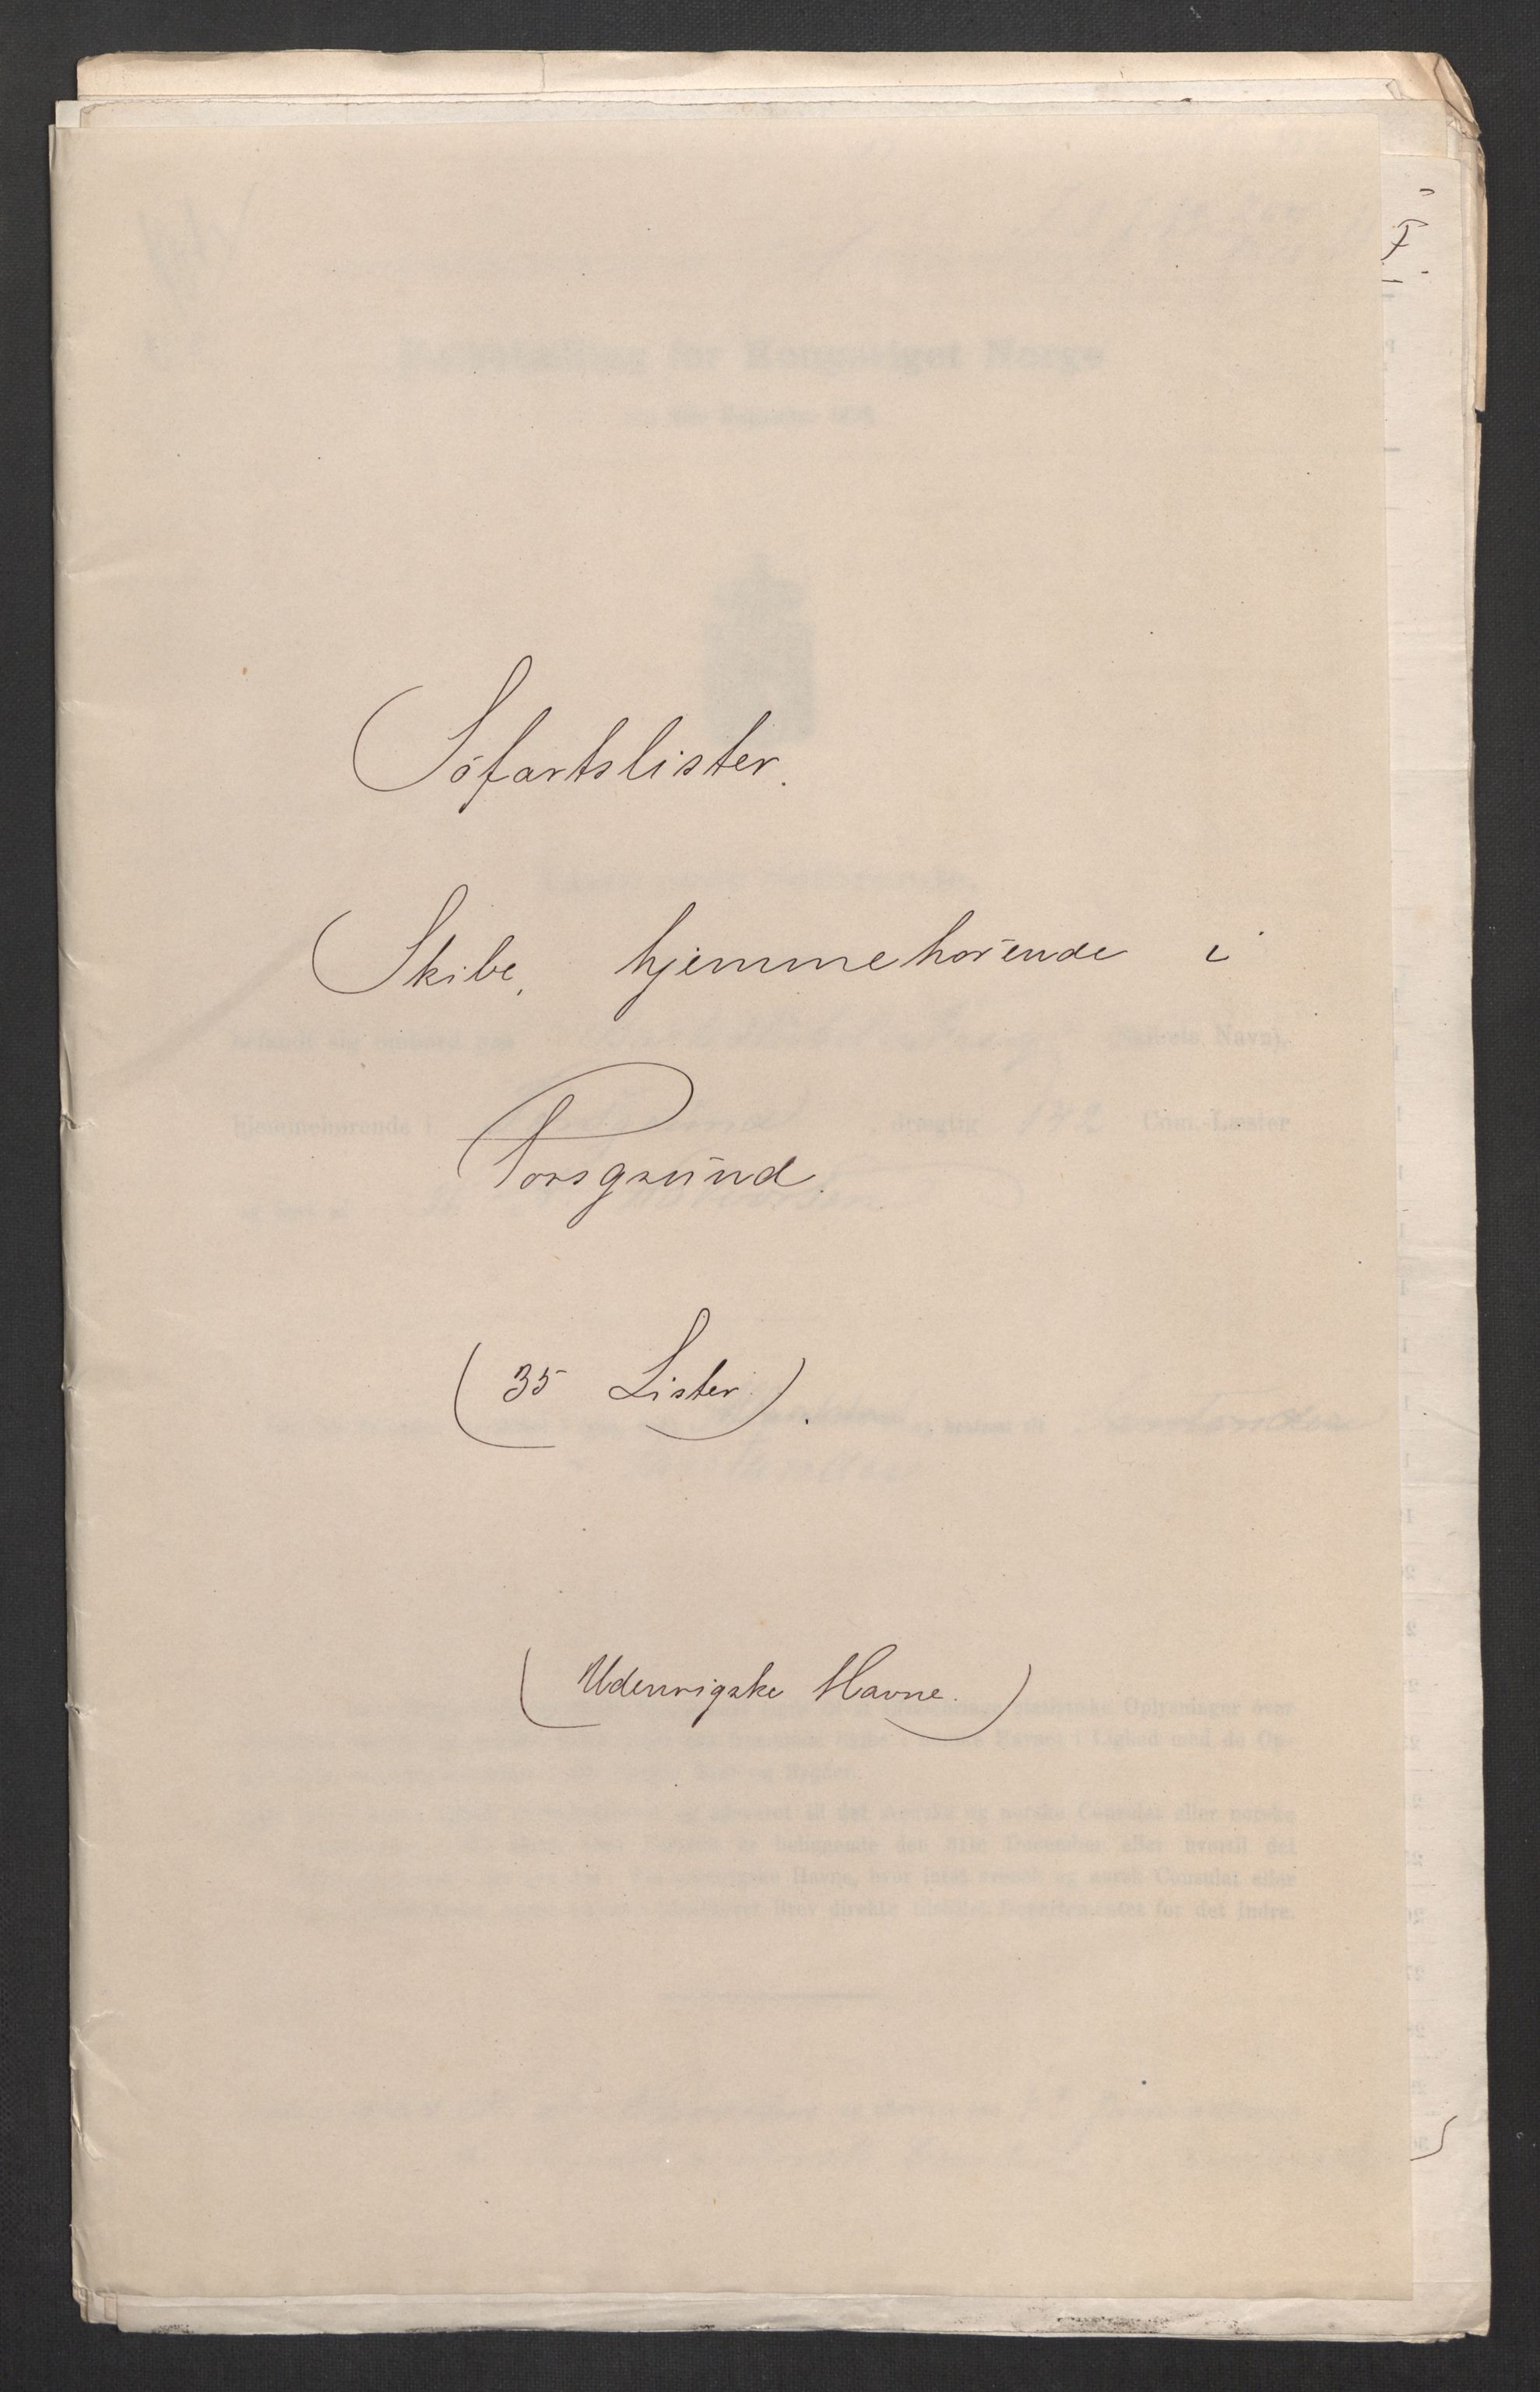 Söfartslister.
Skibe, hjemmehörende i
Porsgrund.
(35 Lister).
(Udenrigske Havne.)